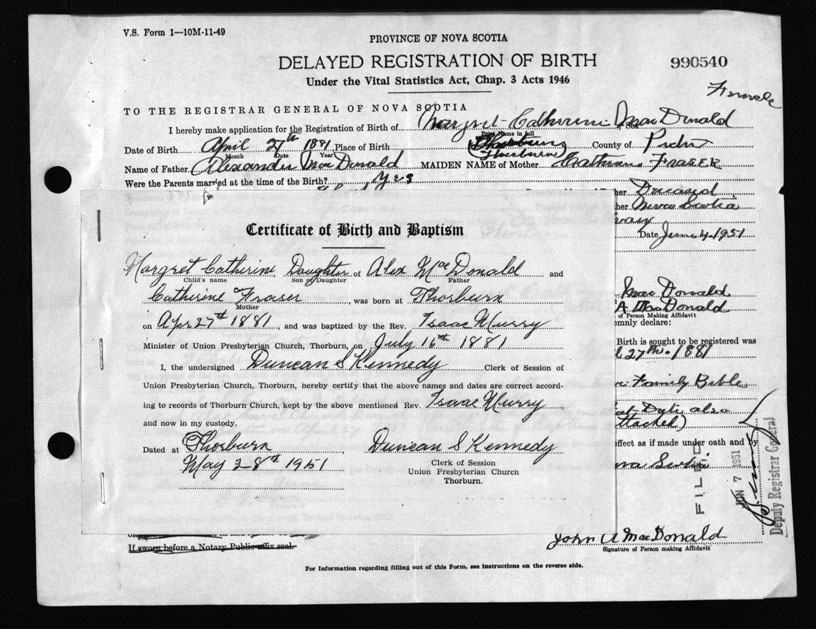 V.S. Form 1—10M-11-49
PROVINCE OF NOVA SCOTIA
DELAYED REGISTRATION OF BIRTH
990540
Under the Vital Statistics Act, Chap. 3 Acts 1946
Female
TO THE REGISTRAR GENERAL OF NOVA SCOTIA
I hereby make application for the Registration of Birth of Margret Catherine MacDonald
Print Name in full
Date of Birth April 27th 1881 Place of Birth Thorburn County of Pictou
Month Date Year Thorburn
Name of Father Alexander MacDonald MAIDEN NAME of Mother Catherine FRASER
Were the Parents married at the time of the Birth? Yes
her Deceased
her Nova Scotia
Date June 4, 1951
Certificate of Birth and Baptism
Margret Catherine Daughter of Alex McDonald and
Child's name Son or Daughter Father
Catherine Fraser, was born at Thorburn
Mother
on Apr 27th 1881, and was baptized by the Rev. Isaac Murry
Minister of Union Presbyterian Church, Thorburn, on July 16th 1881
I, the undersigned Duncan S Kennedy Clerk of Session of
Union Presbyterian Church, Thorburn, hereby certify that the above names and dates are correct accord-
ing to records of Thorburn Church, kept by the above mentioned Rev. Isaac Murry
and now in my custody.
Dated at Thorburn Duncan S Kennedy
May 28th 1951 Clerk of Session
Union Presbyterian Church
Thorburn.
MacDonald
A MacDonald
of Person Making Affidavit
emnly declare:
Birth is sought to be registered was
27th. 1881
Family Bible
also
attached)
effect as if made under oath and by
Scotia
FILED
JUN 7 1951
Deputy Registrar General
John A MacDonald
Signature of Person making Affidavit
If sworn before a Notary Public affix seal.
For Information regarding filling out of this Form, see instructions on the reverse side.